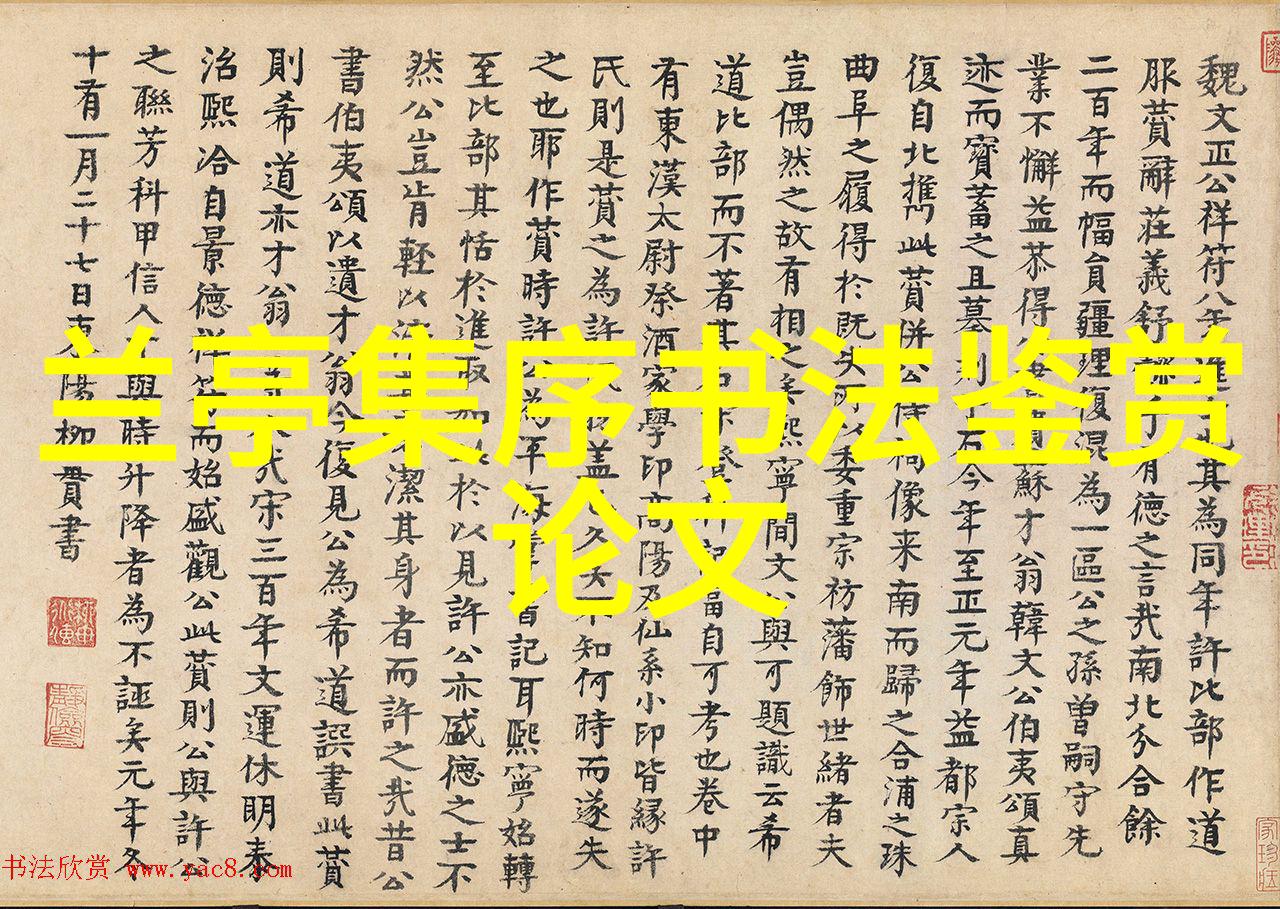 魏文正公祥符八年其為同年許比部作道
服贊辭莊義舒有德之言哉南北分合餘
二百年而幅員疆理復混為一區公之孫曾嗣守先
業不懈益恭得蘇才翁韓文公伯夷頌真
迹而寶蓄之且摹刻石今年至正元年益都宗人
復自北攜此贊併公侍祠像来南而歸之合浦之珠
曲阜之履得於既失所以委重宗祊藩飾世緒者夫
豈偶然之故有相之矣熙寧間文公與可題識云希
道比部而不著其自可考也卷中
有東漢太尉祭酒家學印高陽及仙系小印皆緣許
氏則是贊之為許蓋久矣不知何時而遂失
之也耶作贊時許公為平海書記耳熙寧始轉
至比部其恬於進取如此於以見許公亦盛德之士不
然公豈肯輕以潔其身者而許之哉昔公
書伯夷頌以遺才翁今復見公為希道譔書此贊
則希道亦才翁宋三百年文運休明泰
治熙洽自景德祥符而始盛觀公此贊則公與許公
之聯芳科甲信人才與時升降者為不誣矣元年冬
十有一月二十七日東陽柳貫書
兰亭集序书法鉴赏
论文
书法欣赏 www.yac8.com